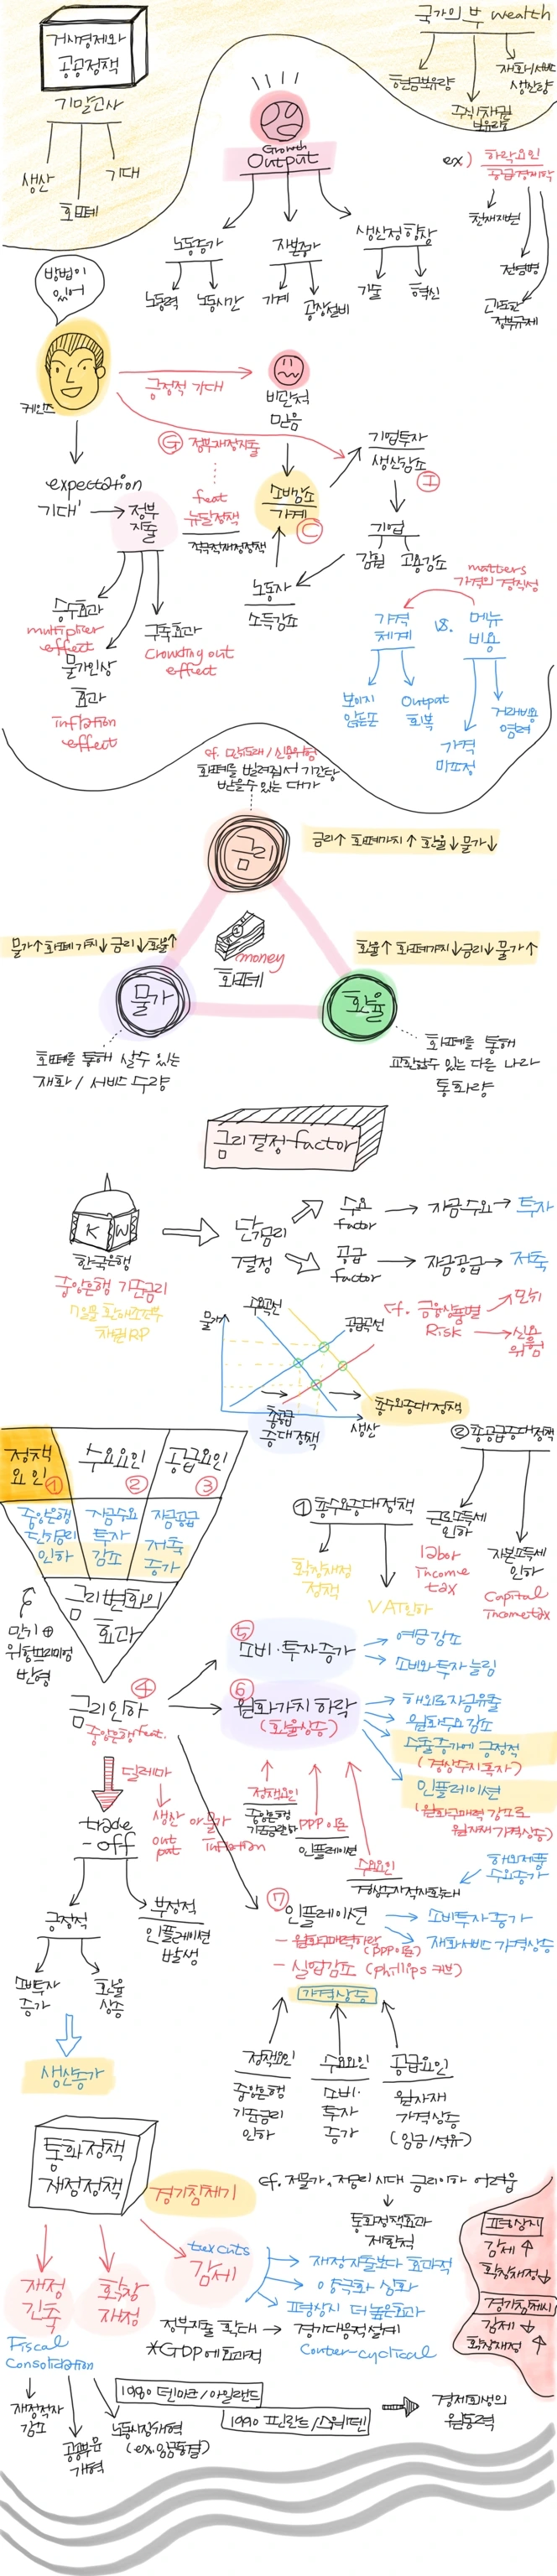 거시경제와
공공정책
기말고사
생산
화폐
기대
국가의 부 wealth
현금보유량
주식/채권
보유량
재화/서비스
생산량
Growth
Output
노동증가
노동력
노동시간
자본증가
기계
공장설비
생산성 향상
기술
혁신
ex) 하락요인
공급경제학
천재지변
전염병
과도한
정부규제
방법이
있어
케인즈
긍정적 기대
비관적
믿음
G 정부재정지출
기업투자
생산감소
I
expectation
기대'
정부
지출
feat
뉴딜정책
적극적재정정책
소비감소
가계
C
기업
감원
고용감소
노동자
소득감소
승수효과
multiplier
effect
물가인상
효과
inflation
effect
구축효과
Crowding out
effect
matters
가격의 경직성
가격
체계
vs.
메뉴
비용
보이지
않는손
Output
회복
가격
미조정
거래비용
염려
cf. 만기도래/신용위험
화폐를 빌려줘서 기간당
받을수 있는 대가
금리
금리↑ 화폐가치↑ 환율↓ 물가↓
물가↑ 화폐가치↓ 금리↓ 환율↑
환율↑ 화폐가치↓ 금리↓ 물가↑
money
화폐
물가
환율
화폐를 통해 살수 있는
재화 / 서비스 수량
화폐를 통해
교환할수 있는 다른 나라
통화량
금리결정 factor
K W
한국은행
중앙은행 기준금리
7일물 환매조건부
채권RP
단기금리
결정
수요
factor
자금수요
투자
공급
factor
자금공급
저축
cf. 금융상품별
Risk
만기
신용
위험
물가
수요곡선
공급곡선
총공급
증대정책
생산
총수요증대정책
정책
요인 ①
수요요인
②
공급요인
③
중앙은행
단기금리
인하
자금수요
투자
감소
자금공급
저축
증가
금리변화의
효과
만기 ⊕
위험프리미엄
반영
① 총수요증대정책
확장재정
정책
VAT인하
② 총공급증대정책
근로소득세
인하
labor
income
tax
자본소득세
인하
Capital
Income tax
④
금리인하
중앙은행 feat.
⑤
소비·투자증가
예금 감소
소비와 투자 늘림
⑥
원화가치 하락
(환율상승)
해외로 자금유출
원화수요 감소
수출증가에 긍정적
(경상수지흑자)
인플레이션
(원화구매력 감소로
원자재 가격상승)
딜레마
trade
-off
생산 or 물가
output
inflation
긍정적
소비투자
증가
환율
상승
생산증가
부정적
인플레이션
발생
정책요인
중앙은행
기준금리인하
PPP이론
인플레이션
수요요인
경상수지적자확대
해외제품
수요증가
⑦
인플레이션
- 원화구매력하락 (PPP이론)
- 실업감소 (phillips 커브)
소비투자 증가
재화서비스 가격상승
가격상승
정책요인
중앙은행
기준금리
인하
수요요인
소비·
투자
증가
공급요인
원자재
가격상승
(임금/석유)
통화정책
재정정책
경기침체기
cf. 저물가, 저금리시대 금리인하 어려움
통화정책효과
제한적
재정
긴축
Fiscal
Consolidation
확장
재정
tax cuts
감세
재정지출보다 효과적
양극화 심화
평상시 더 높은효과
정부지출 확대 → 경기대응적설계
*GDP에 효과적
Counter-cyclical
평상시
감세 ↑
확장재정↓
경기침체시
감세 ↓
확장재정 ↑
재정적자
감소
공공부문
개혁
노동시장개혁
(ex.임금동결)
1980 덴마크/아일랜드
1990 핀란드/스웨덴
경제회생의
원동력